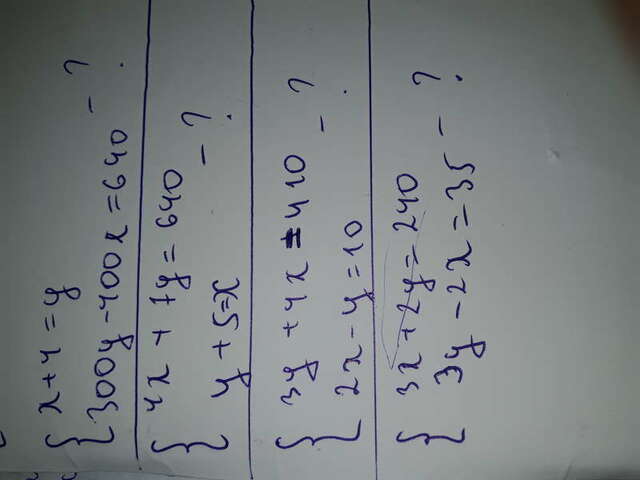 x+4=y
300y-400x=640 - ?
4x+7y=640
y+5=x - ?
3y+4x=410
2x-y=10 - ?
3x+2y=240
3y-2x=35 - ?